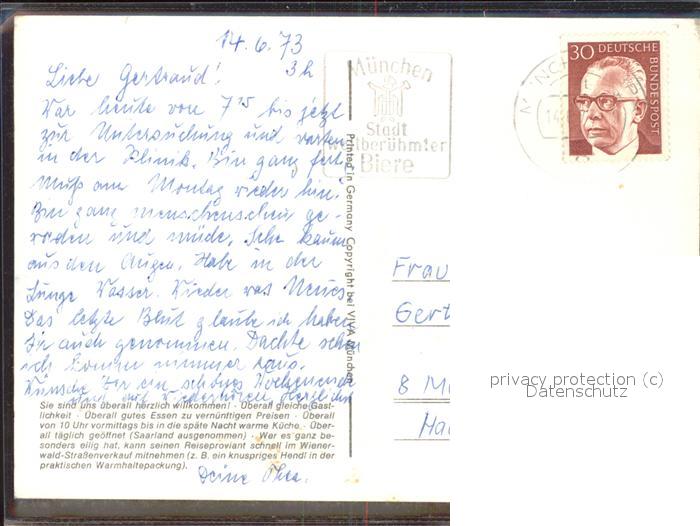 14.6.73
3 h
Liebe Gertraud!
War heute von 7 15 bis jetzt
zur Untersuchung und warten
in der Klinik. Bin ganz fertig
Muß am Montag wieder hin.
Bin ganz menschenscheu ge-
worden und müde. Sehe kaum
aus den Augen. Habe in der
Lunge Wasser. Wieder was Neues.
Das letzte Blut glaube ich haben
Sie auch genommen. Dachte schon
ich komm nimmer raus.
Wünsche Dir ein schönes Wochenende
und auf Wiederhören Herzlichst
Deine
Sie sind uns überall herzlich willkommen! · Überall gleiche Gast-
lichkeit · Überall gutes Essen zu vernünftigen Preisen · Überall
von 10 Uhr vormittags bis in die späte Nacht warme Küche. · Über-
all täglich geöffnet (Saarland ausgenommen) · Wer es ganz be-
sonders eilig hat, kann seinen Reiseproviant schnell im Wiener-
wald-Straßenverkauf mitnehmen (z. B. ein knuspriges Hendl in der
praktischen Warmhaltepackung).
Printed in Germany Copyright bei VIVA München
München
Stadt
weltberühmter
Biere
30 DEUTSCHE
BUNDESPOST
Frau
Gert
8 Mü
privacy protection (c)
Datenschutz